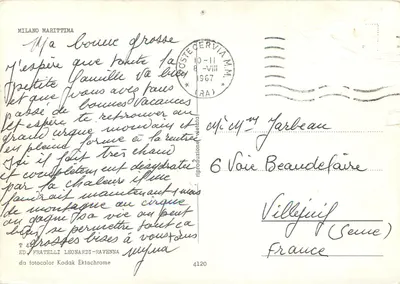 MILANO MARITTIMA
Ma bonne grosse
J'espère que toute la
petite famille va bien
et que vous avez
passé de bonnes vacances
et espère te retrouver au
grand cirque mondain et
en pleine forme à la rentrée
Ici il fait très chaud
et complètement
par la chaleur il me
faudrait maintenant 1 mois
de montagne au cirque
on gagne sa vie on peut
bien se permettre tout ça
grosses bises à vous tous
myna
POSTE CERVIA M.M.
10-11
8-VIII
1967
(RA)
Mr Mme Jarbeau
6 Voie Beaudelaire
Villejuif
(Seine)
France
ED. FRATELLI LEONARDI-RAVENNA
da fotocolor Kodak Ektachrome
4120